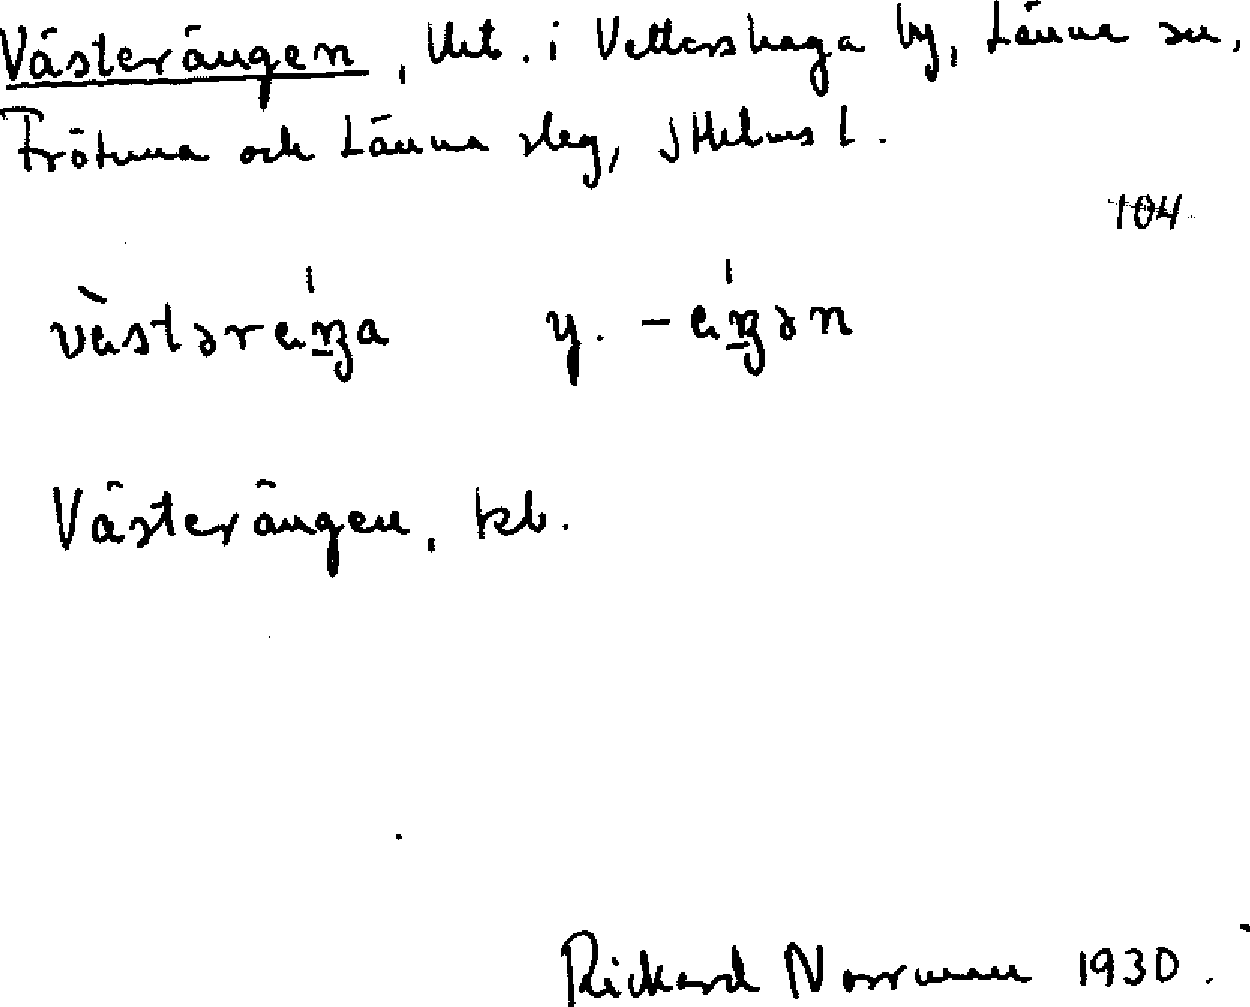 Västerängen, lht. i Vettershaga by, Länna sn,
Frötuna och Länna slag, Sthlms l.
104
vàstərεŋa y. -εŋən
Västerängen, kb.
Rickard Norrman 1930.